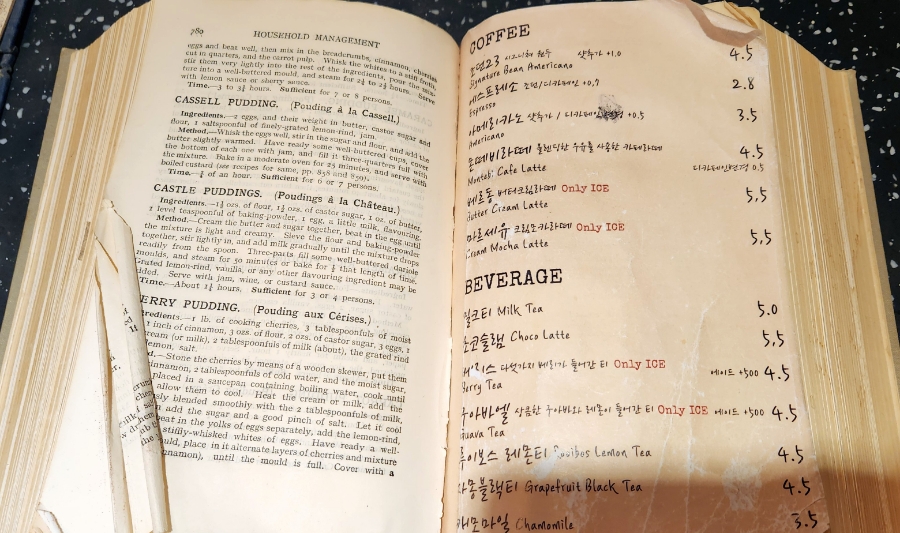 789 HOUSEHOLD MANAGEMENT
eggs and beat well, then mix in the breadcrumbs, cinnamon, cherries
cut in quarters, and the carrot pulp. Whisk the whites to a stiff froth,
stir them very lightly into the rest of the ingredients, pour the
into a well-buttered mould, and steam for 2¼ to 2½ hours. Serve
with lemon sauce or sherry sauce.
Time.—3 to 3½ hours. Sufficient for 7 or 8 persons.
CASSELL PUDDING. (Pouding à la Cassell.)
Ingredients.—2 eggs, and their weight in butter, castor sugar and
flour, 1 saltspoonful of finely-grated lemon-rind, jam.
Method.—Whisk the eggs well, stir in the sugar and flour, and add the
butter slightly warmed. Have ready some well-buttered cups, cover
the bottom of each one with jam, and fill it three-quarters full with
the mixture. Bake in a moderate oven for 25 minutes, and serve with
boiled custard (see recipes for same, pp. 858 and 859).
Time.—¾ of an hour. Sufficient for 6 or 7 persons.
CASTLE PUDDINGS. (Poudings à la Château.)
Ingredients.—1½ ozs. of flour, 1½ ozs. of castor sugar, 1 oz. of butter,
1 level teaspoonful of baking-powder, 1 egg, a little milk, flavouring.
Method.—Cream the butter and sugar together, beat in the egg until
the mixture is light and creamy. Sieve the flour and baking-powder
together, stir lightly in, and add milk gradually until the mixture drops
readily from the spoon. Three-parts fill some well-buttered dariole
moulds, and steam for 50 minutes or bake for ½ that length of time.
Grated lemon-rind, vanilla, or any other flavouring ingredient may be
added. Serve with jam, wine, or custard sauce.
Time.—About 1¼ hours. Sufficient for 3 or 4 persons.
ERRY PUDDING. (Pouding aux Cérises.)
redients.—1 lb. of cooking cherries, 3 tablespoonfuls of moist
1 inch of cinnamon, 3 ozs. of flour, 2 ozs. of castor sugar, 3 eggs, 1
cream (or milk), 2 tablespoonfuls of milk (about), the grated rind
lemon, salt.
d.—Stone the cherries by means of a wooden skewer, put them
innamon, 2 tablespoonfuls of cold water, and the moist sugar,
placed in a saucepan containing boiling water, cook until
allow them to cool. Heat the cream or milk, add the
sly blended smoothly with the 2 tablespoonfuls of milk,
n add the sugar and a good pinch of salt. Let it cool
beat in the yolks of eggs separately, add the lemon-rind,
stiffly-whisked whites of eggs. Have ready a well-
uld, place in it alternate layers of cherries and mixture
nnamon), until the mould is full. Cover with a
COFFEE
조연23 시그니쳐 원두 샷추가 +1.0 4.5
Signature Bean Americano
에스프레소 조연/디카페인 +0.7 2.8
Espresso
아메리카노 샷추가 / 디카페인변경 +0.5 3.5
Americano
몬떼비라떼 블렌딩한 우유를 사용한 카페라떼 4.5
Montebi Cafe Latte 디카페인변경 0.5
베르동 버터크림라떼 Only ICE 5.5
Butter Cream Latte
마르세유 크림모카라떼 Only ICE 5.5
Cream Mocha Latte
BEVERAGE
밀크티 Milk Tea 5.0
초코슬램 Choco Latte 5.5
다섯가지 베리가 들어간 티 Only ICE 에이드 +500 4.5
Berry Tea
구아바엘 상큼한 구아바와 레몬이 들어간 티 Only ICE 에이드 +500 4.5
Guava Tea
루이보스 레몬티 Rooibos Lemon Tea 4.5
자몽블랙티 Grapefruit Black Tea 4.5
캐모마일 Chamomile 3.5